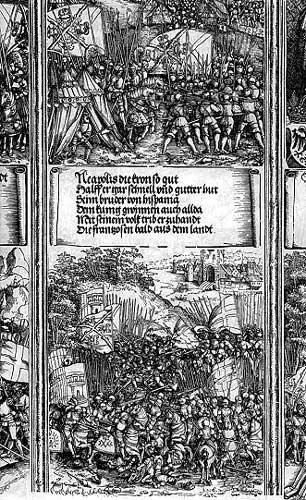 Neapolis die kron so gut
Halff er gar schnell vnd gutter hut
Seim bruder von hispania
Dem kunig gwynnen auch allda
Mit seinem volk trib er zuhandt
Die franzosen bald aus dem landt.